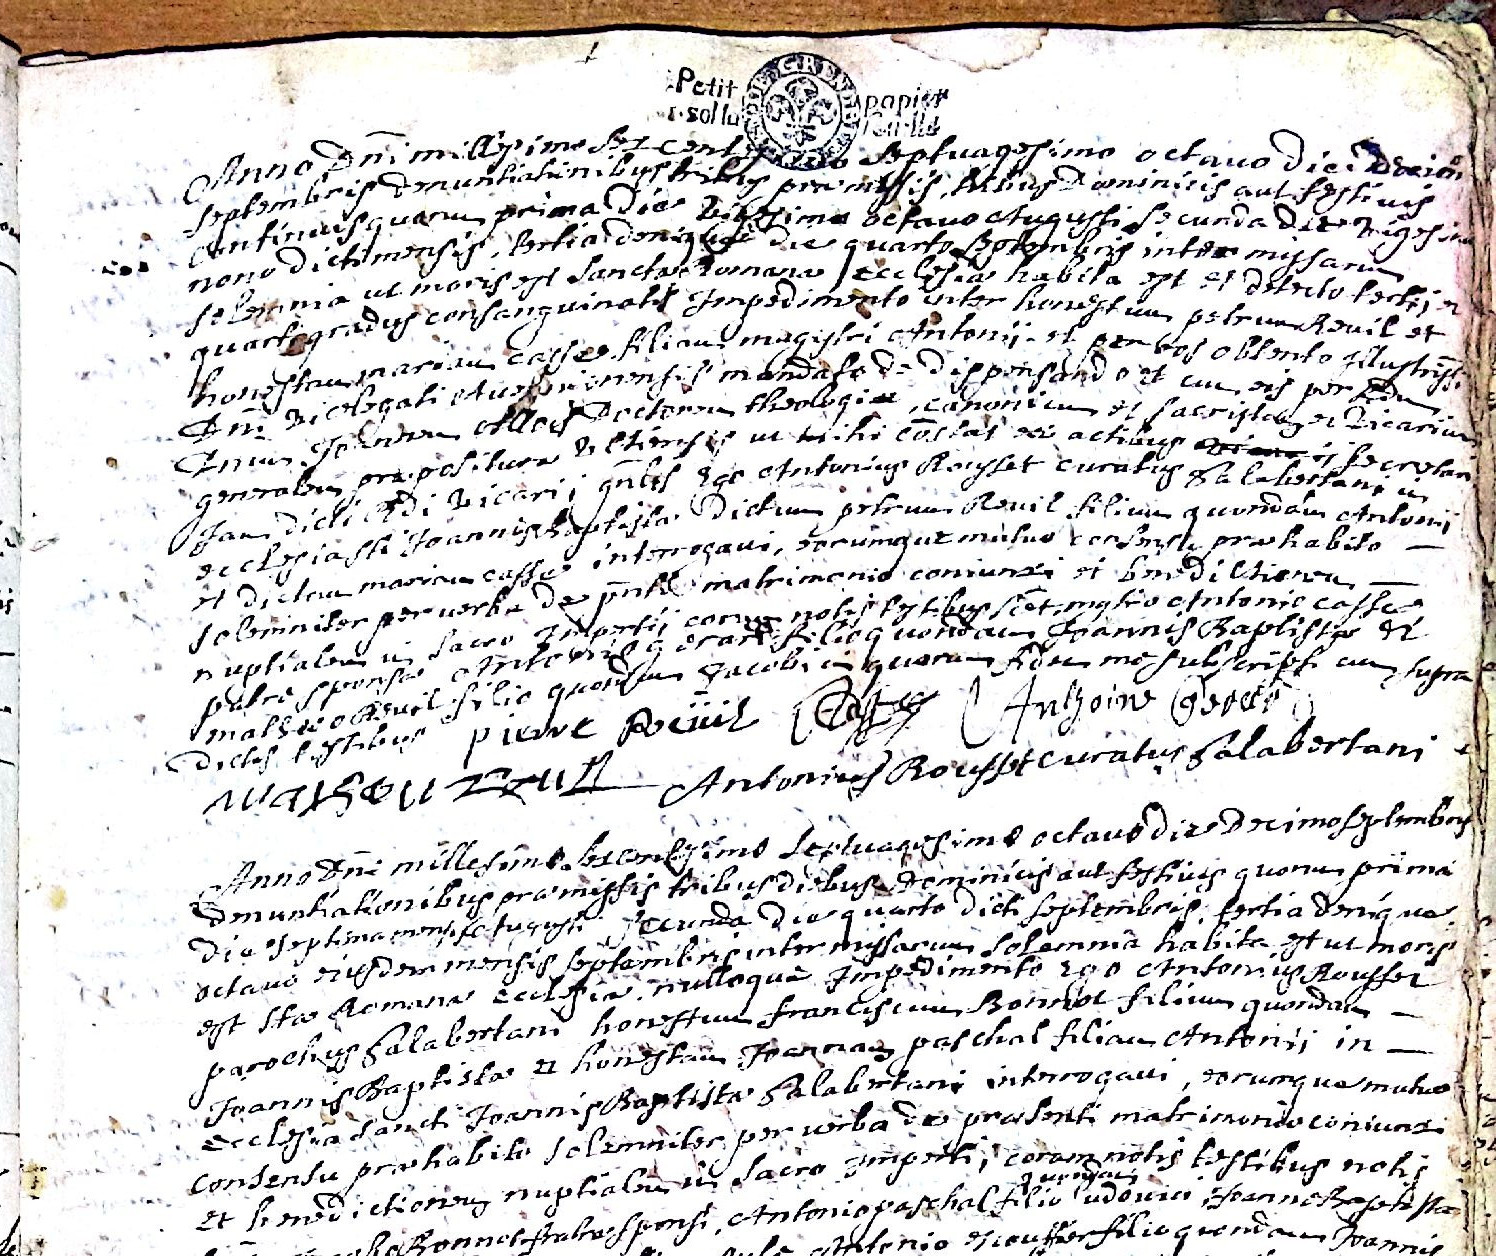 Petit papier
sol la feuille
Anno Dni millesimo sexcentesimo septuagesimo octavo die decimo
septembris denuntiationibus tribus præmissis, tribus Dominicis aut festivis
continuis quarum prima die vigesima octavo Augusti secunda die vigesima
nono dicti mensis, tertia denique die quarto septembris inter missarum
solemnia ut moris est sanctæ Romanæ Ecclesiæ habita est et detecto tertij et
quarti gradus consanguinitatis Impedimento inter honestum petrum Revil et
honestam mariam Casse filiam magistri Antonij et per eos obtento Illustrissi
Dni Vicelegati Avenionensis mandato de dispensando et cum eis per Rdm
Dnum Joannem Doctorem theologiæ, canonicum et sacristam et Vicarium
generalem præpositura Ultiensis ut mihi constat ex actibus secretarij
Jam dicti Rdi Vicarij gnlis Ego Antonius Rousset curatus Salabertani in
ecclesia sti Joannis Baptistæ dictum petrum Revil filium quondam Antonij
et dictam mariam casse interrogavi, eorumque mutuo consensu præhabito –
solemniter per verba de pnti matrimonio coniunxi et benedictionem –
nuptialem in sacro Impertij coram notis testibus scet mgro Antonio casse
patre sponsæ Antonio filio quondam Joannis Baptistæ et
matheo Revil filio quondam Jacobi in quorum fidem me subscripsi cum supra
dictis testibus pierre Reüil Casse Anthoine
Antonius Rousset curatus Salabertani
Anno Dni millesimo sexcentesimo septuagesimo octavo die Decimo septembris
denuntiationibus præmissis tribus diebus dominicis aut festivis quorum prima
die septima mensis Augusti secunda die quarto dicti septembris, tertia denique
octavo eiusdem mensis septembris inter missarum solemnia habita est ut moris
est stæ Romanæ ecclesiæ, nulloque Impedimento Ego Antonius Rousset
parochus Salabertani honestum franciscum Bonnot filium quondam –
Joannis Baptistæ et honestam Joannam paschal filiam Antonij in –
Ecclesia sancti Joannis Baptistæ Salabertani interrogavi, eorumque mutuo
consensu præhabito solemniter per verba de præsenti matrimonio coniunxi
et benedictionem nuptialem in sacro Imperti, coram notis testibus notis
Bonnot fratre sponsi, Antonio paschal filio quondam Ludovici Joanne Baptista
Antonio filio quondam Joannis